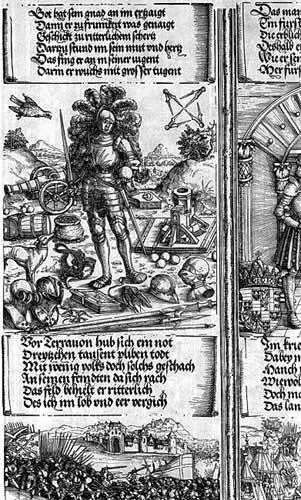 Got hat sein gnad an im erzaigt
Dann er zu frumkeit was genaigt
Geschickt zu ritterlichem schertz
Darzu stund im sein mut und hertz
Das fing er an in seiner iugent
Darin er wuchs mit grosser tugent
Vor Terravon hub sich ein not
Dreytzehen tausent pliben todt
Mit wenig volks doch solchs geschach
An seinen feyndten da sich rach
Das feld behielt er ritterlich
Des ich im lob und eer vergich
Das man
Im fürst
Die erblich
Deshalb e
Wie er sei
Aber für
Im krie
Dabey n
Manch
Wiewol
Doch me
Das lan